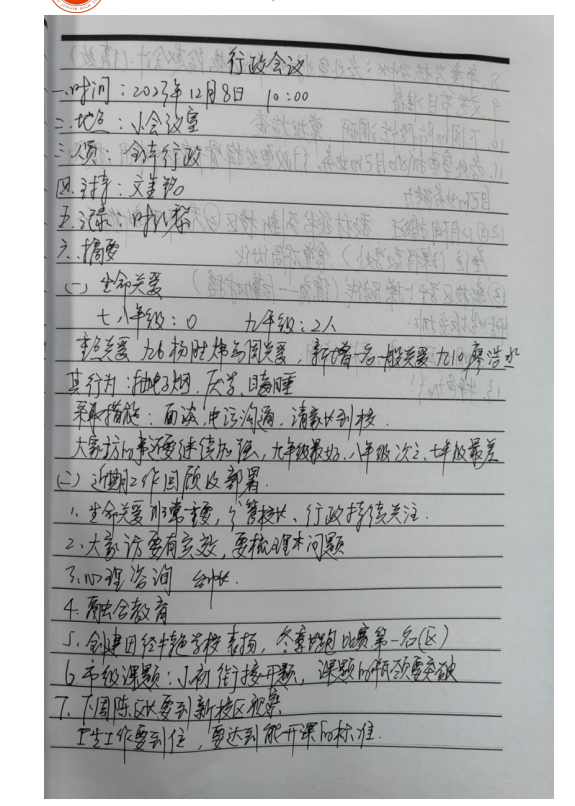 行政会议
一.时间：2023年12月8日 10:00
二.地点：小会议室
三.人员：全体行政
四.主持：文
五.记录：叶
六.摘要
(一) 生命关爱
七.八年级：0 九年级：2人
重点关爱 九6杨胜炜与周关爱，新增一名一般关爱九10廖浩
其行为：抽电子烟.厌学.瞌睡
采取措施：面谈.电话沟通.请家长到校.
大家访的事还要继续加强，九年级最好.八年级次之.七年级最差
(二) 近期工作回顾及部署.
1.生命关爱非常重要，分管校长、行政持续关注.
2.大家访要有实效，要梳理本问题
3.心理咨询
4.融合教育
5.创建田径特色学校表扬，冬季长跑比赛第一名(区)
6.市级课题：小初衔接开题，课题的瓶颈要突破
7.下周陈区长要到新校区视察
卫生工作要到位，要达到能开课的标准.